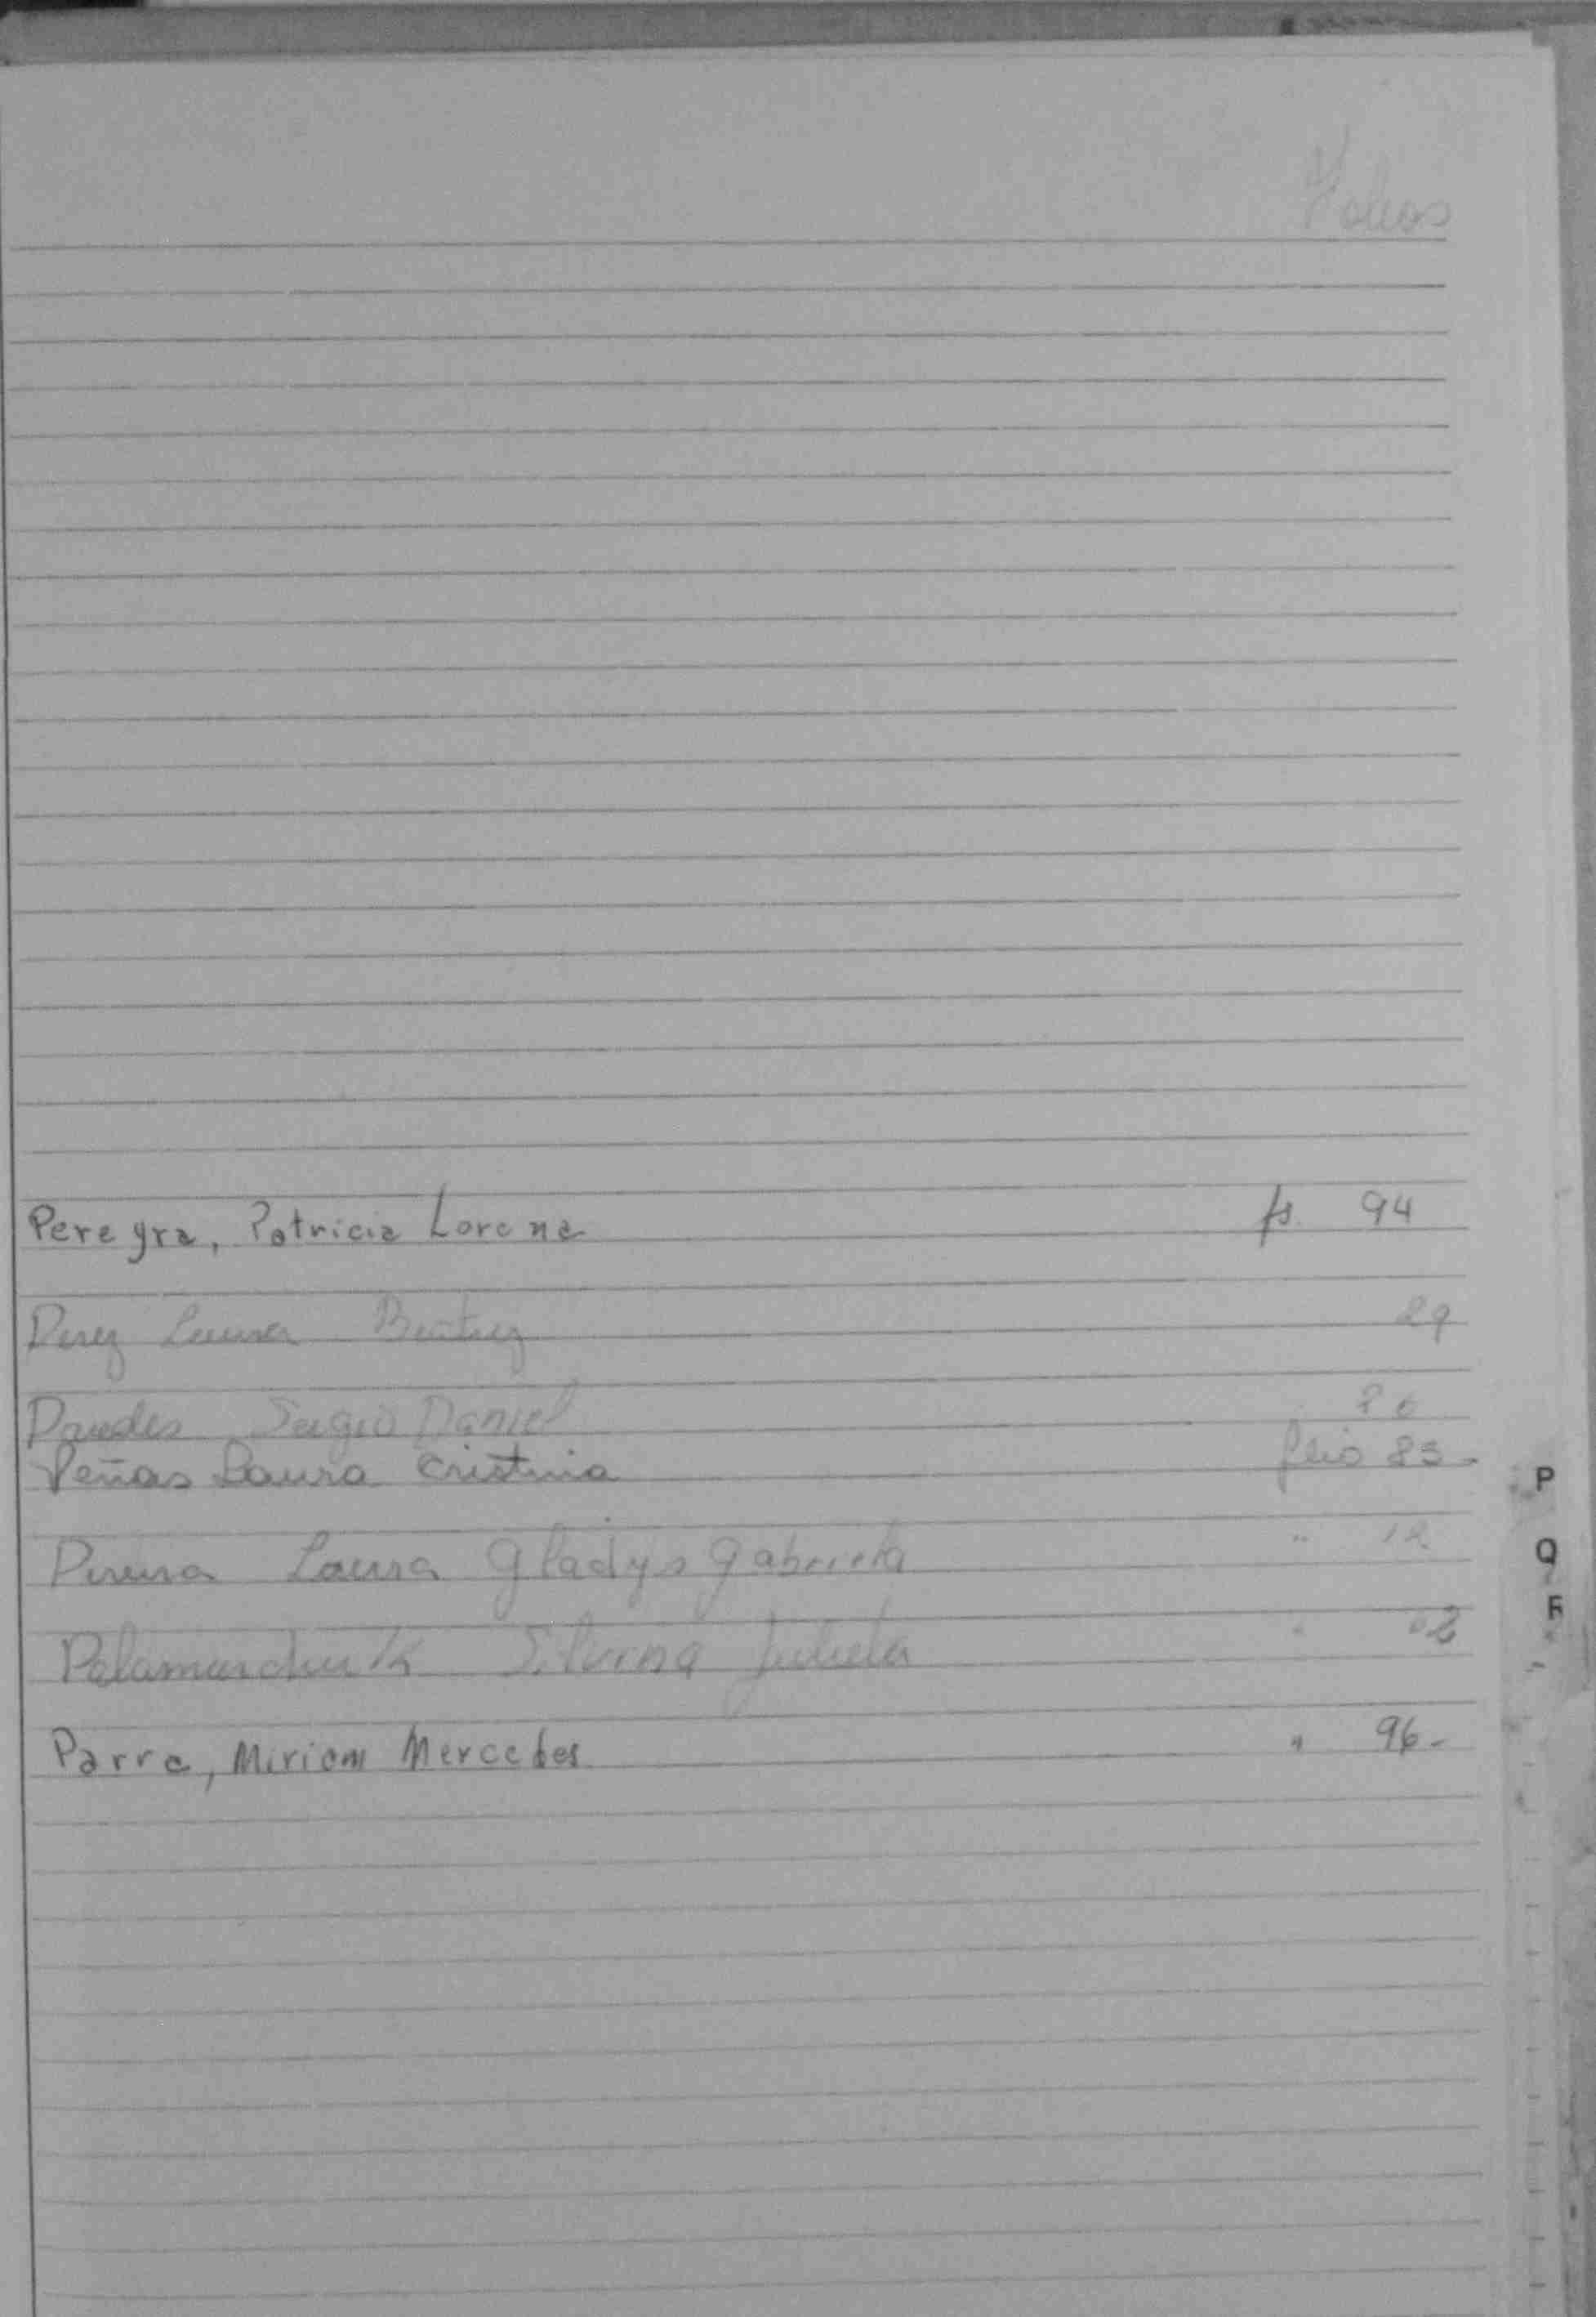 Folios
Pereyra, Patricia Lorena fs 94
Perez Laura Beatriz 29
Paredes Sergio Daniel 86
Peñas Laura Cristina folio 83-
Pereira Laura Gladys Gabriela " 12
Silvina Julieta "
Parra, Miriam Mercedes " 96-
P
Q
R